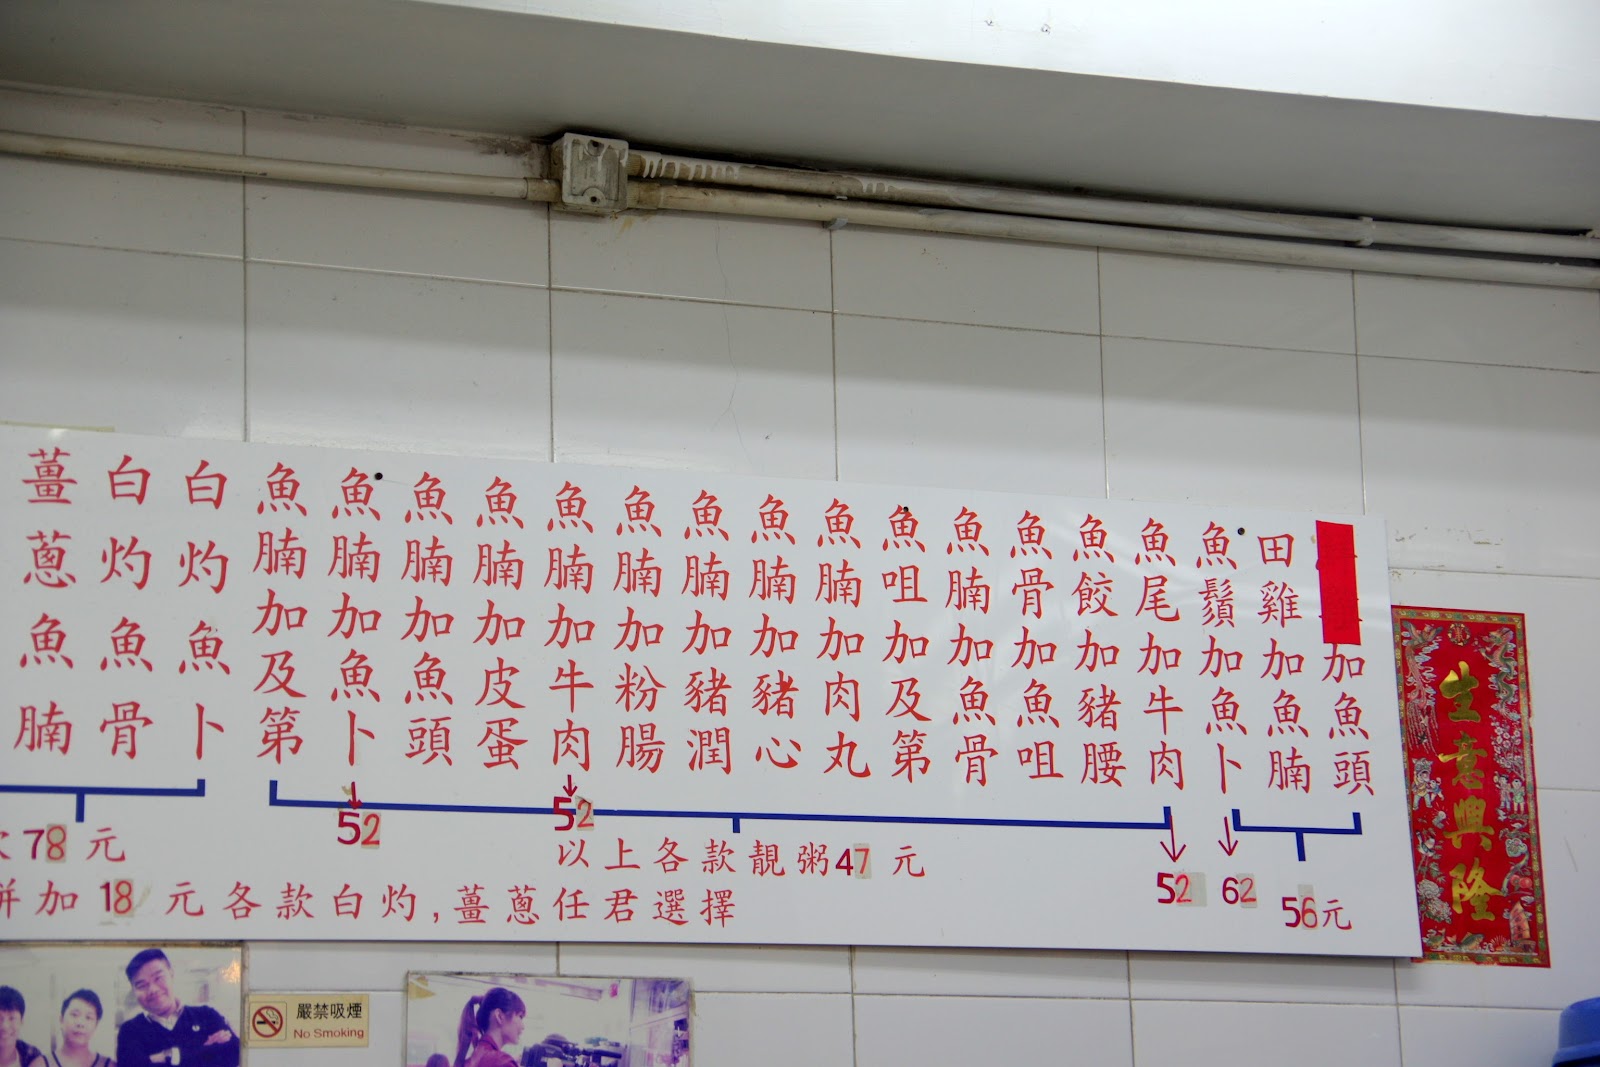 加魚頭
田雞加魚腩
魚鬚加魚卜
魚尾加牛肉
魚餃加豬腰
魚骨加魚咀
魚腩加魚骨
魚咀加及第
魚腩加肉丸
魚腩加豬心
魚腩加豬潤
魚腩加粉腸
魚腩加牛肉
魚腩加皮蛋
魚腩加魚頭
魚腩加魚卜
魚腩加及第
白灼魚卜
白灼魚骨
薑蔥魚腩
56元
62
52
52
52
以上各款靚粥47元
78元
加18元各款白灼,薑蔥任君選擇
生意興隆
嚴禁吸煙
No Smoking